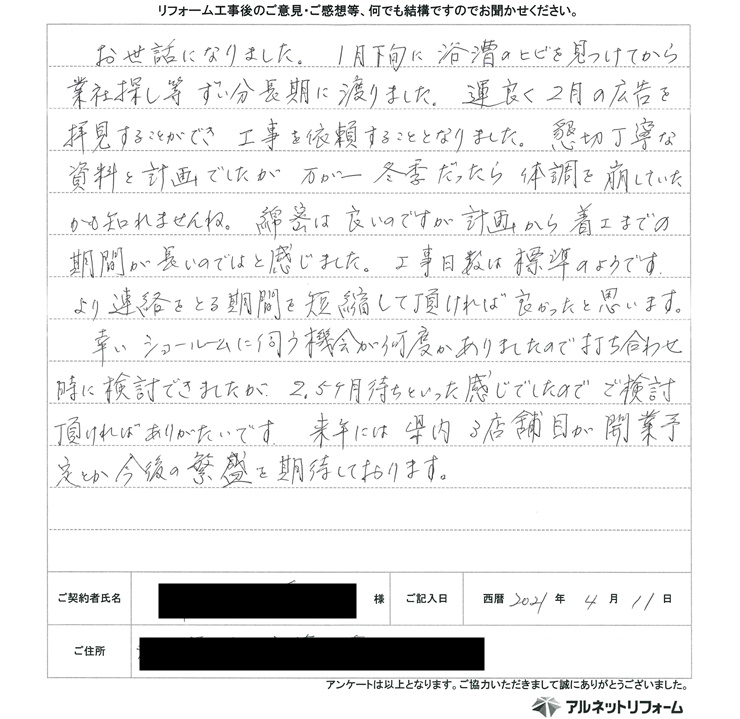 リフォーム工事後のご意見・ご感想等、何でも結構ですのでお聞かせください。
お世話になりました。 1月下旬に 浴漕のヒビを見つけてから
業社探し等 ずい分長期に渡りました。 運良く 2月の広告を
拝見することができ 工事を依頼することとなりました。 懇切丁寧な
資料と計画でしたが 万が一 冬季だったら 体調を崩していた
かも知れませんね。 綿密は良いのですが 計画から着工までの
期間が長いのではと感じました。 工事日数は標準のようです。
より連絡をとる期間を短縮して頂ければ良かったと思います。
幸い ショールームに伺う機会が何度かありましたので打ち合わせ
時に検討できましたが、2.5ヶ月待ちといった感じでしたので ご検討
頂ければありがたいです 来年には 県内 3店舗目が開業予
定とか今後の繁盛を期待しております。
ご契約者氏名 様 ご記入日 西暦 2021 年 4 月 11 日
ご住所
アンケートは以上となります。ご協力いただきまして誠にありがとうございました。
アルネットリフォーム